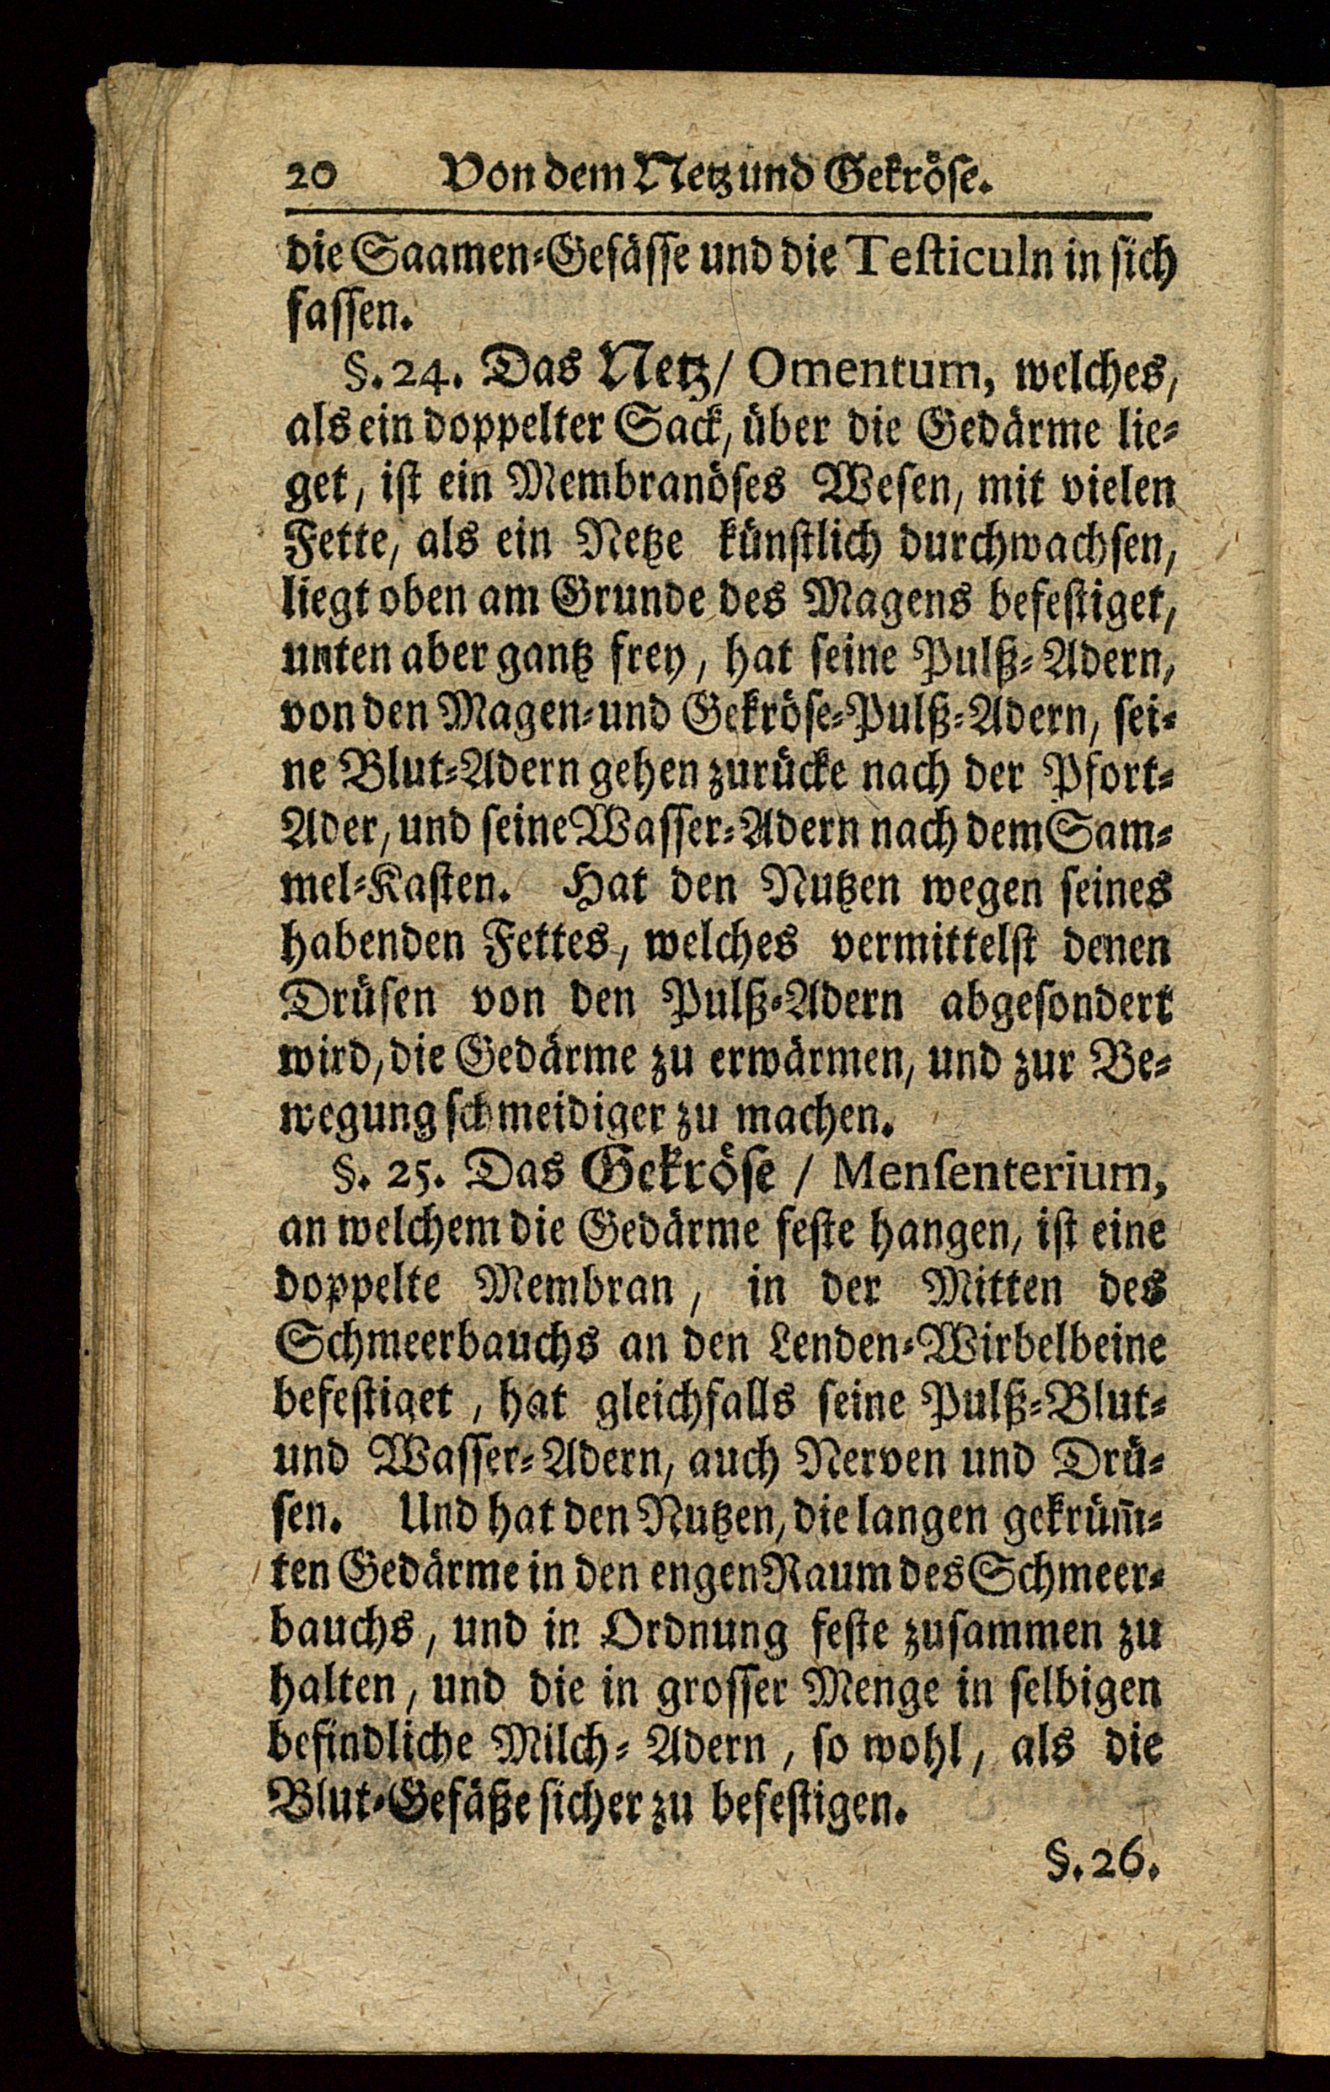 20 Von dem Netz und Gekröse.
die Saamen-Gefässe und die Testiculn in sich
fassen.
§. 24. Das Netz/ Omentum, welches,
als ein doppelter Sack, über die Gedärme lie-
get, ist ein Membranöses Wesen, mit vielen
Fette, als ein Netze künstlich durchwachsen,
liegt oben am Grunde des Magens befestiget,
unten aber gantz frey, hat seine Pulß-Adern,
von den Magen-und Gekröse-Pulß-Adern, sei-
ne Blut-Adern gehen zurücke nach der Pfort-
Ader, und seine Wasser-Adern nach dem Sam-
mel-Kasten. Hat den Nutzen wegen seines
habenden Fettes, welches vermittelst denen
Drüsen von den Pulß-Adern abgesondert
wird, die Gedärme zu erwärmen, und zur Be-
wegung schmeidiger zu machen.
§. 25. Das Gekröse / Mensenterium,
an welchem die Gedärme feste hangen, ist eine
doppelte Membran, in der Mitten des
Schmeerbauchs an den Lenden-Wirbelbeine
befestiget, hat gleichfalls seine Pulß-Blut-
und Wasser-Adern, auch Nerven und Drü-
sen. Und hat den Nutzen, die langen gekrüm̃-
ten Gedärme in den engen Raum des Schmeer-
bauchs, und in Ordnung feste zusammen zu
halten, und die in grosser Menge in selbigen
befindliche Milch-Adern, so wohl, als die
Blut-Gefäße sicher zu befestigen.
§. 26.